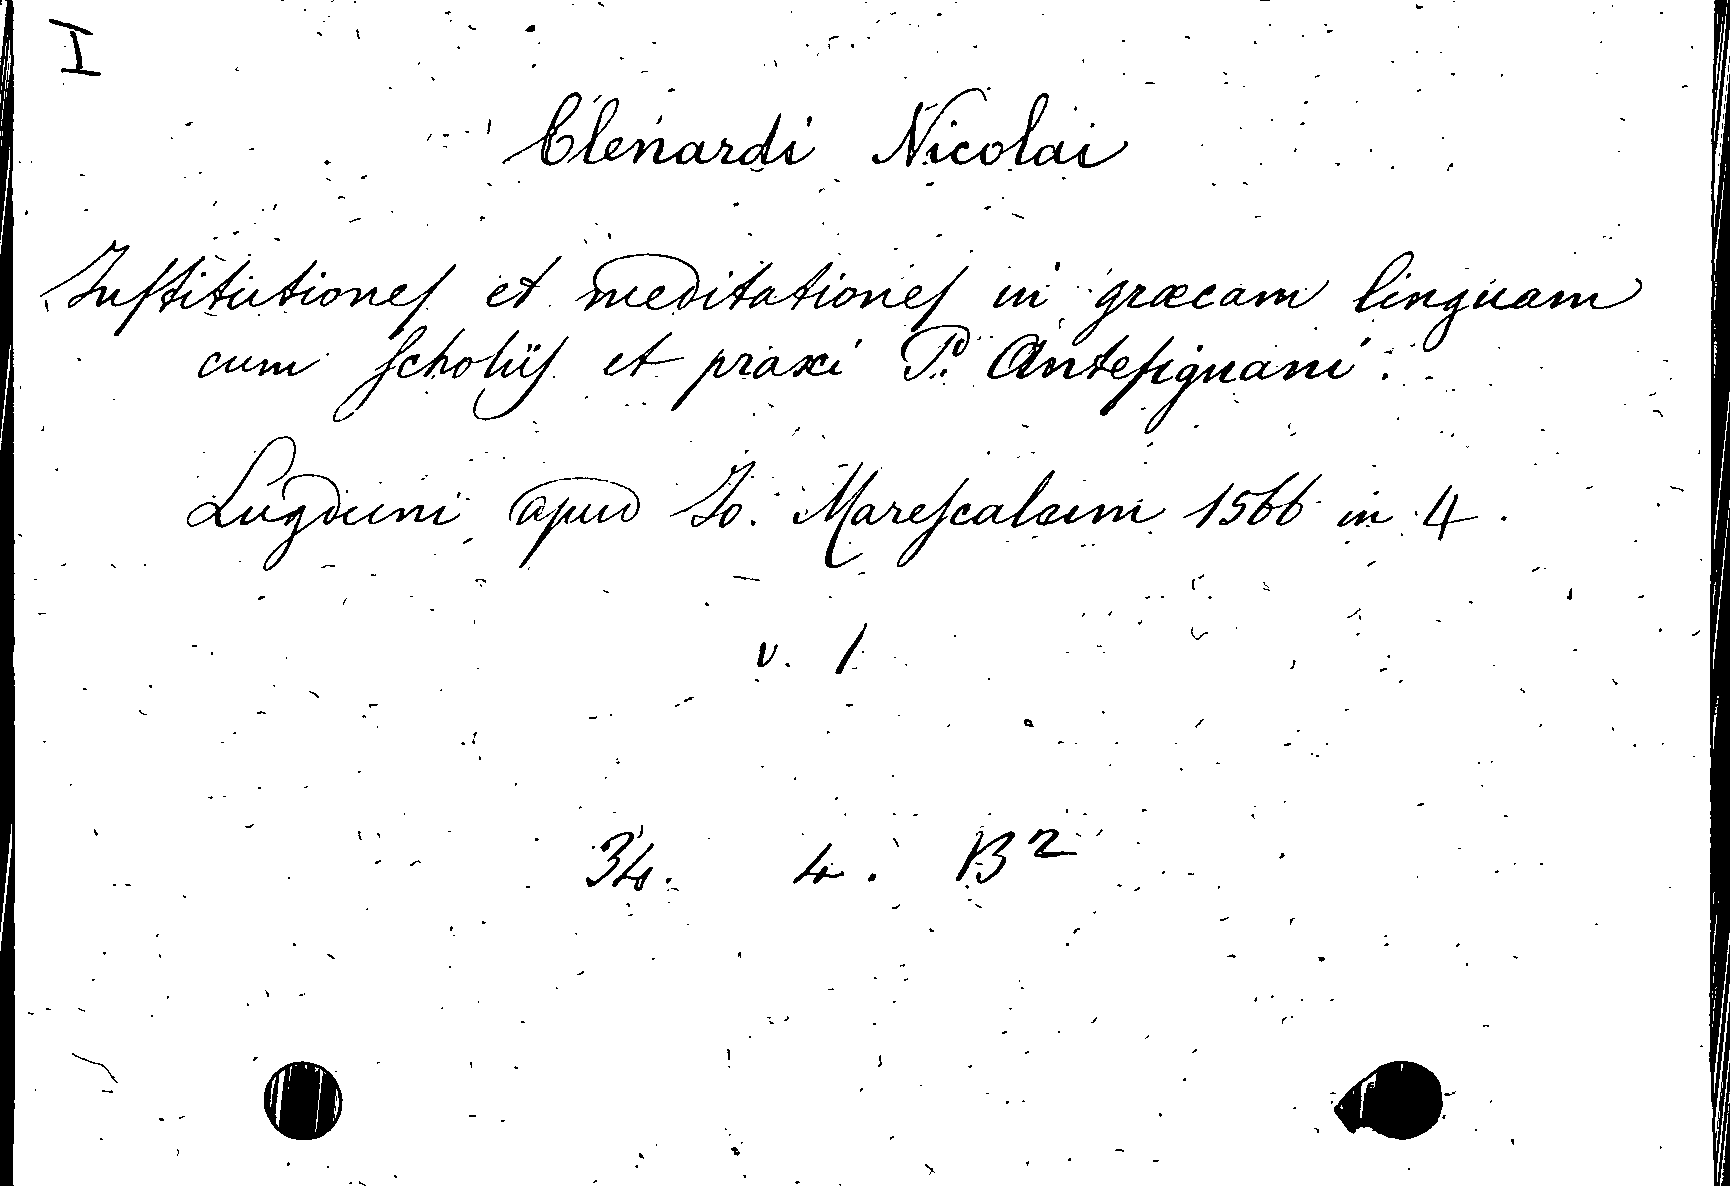 I
Clenardi Nicolai
Inſtitutioneſ et meditationeſ in græcam linguam
cum ſcholijſ et praxi P. Anteſignani.
Lugduni apud Jo. Mareſcalum 1566 in 4.
v. 1
34. 4. B²